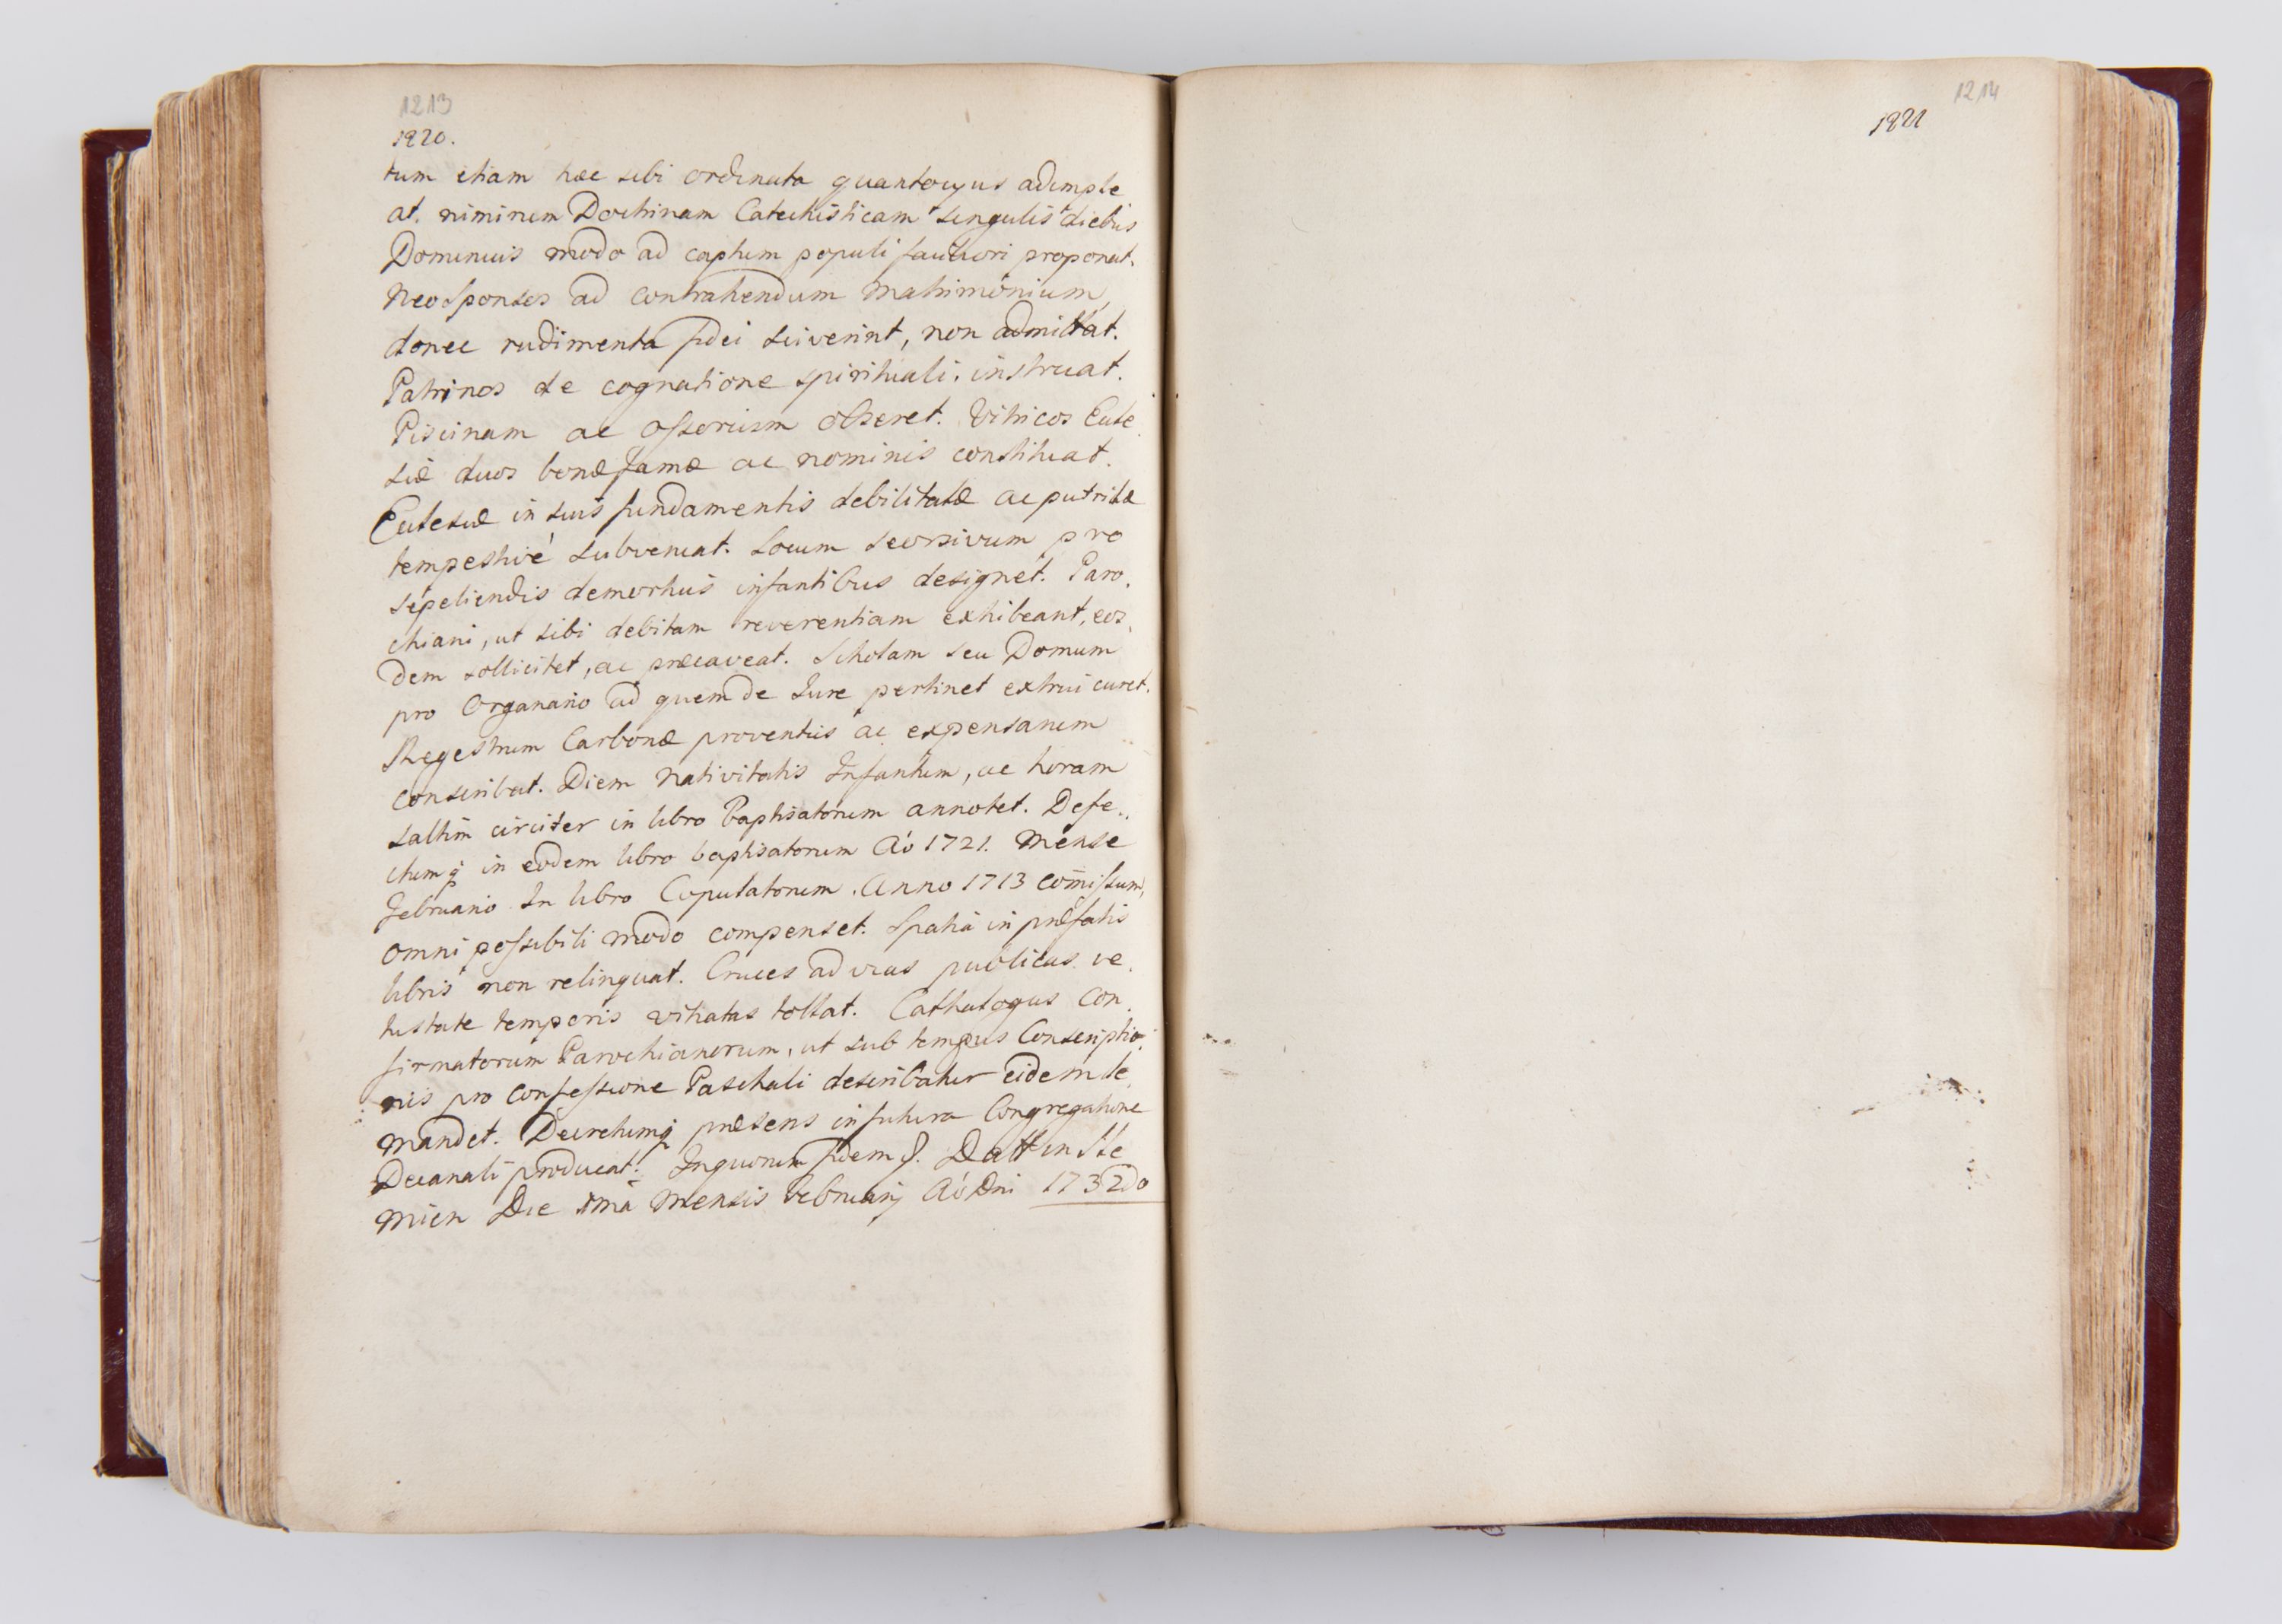 1213
1820.
tum etiam hæc sibi ordinata quantocyus adimple
at. niminem Doctrinam Catechisticam singulis diebus
Dominicis modo ad captum populi faciliori proponat.
Neosponsos ad contrahendum Matrimonium,
donec rudimenta fidei sciverint, non admittat.
Patrinos de cognatione spirituali instruat.
Piscinam ac ossorium obseret. Vitricos Eccle.
siæ duos bonæ famæ ac nominis constituat.
Ecclesiæ in suis fundamentis debilitatæ ac putridæ
tempestivé subveniat. Locum seorsivum pro
sepeliendis demortuis infantibus designet. Paro.
chiani, ut sibi debitam reverentiam exhibeant, eos.
dem sollicitet, ac præcaveat. Scholam seu Domum
pro Organario ad quem de Jure pertinet extrui curet.
Regestrum Carbonæ proventûs ac expensarum
conscribat. Diem Nativitatis Infantum, ac horam
saltim circiter in libro Baptisatorum annotet. Defe..
ctumq in eodem libro baptisatorum Aó 1721. Mense
Februario In libro Copulatorum. Anno 1713 comissum,
omni possibili modo compenset. Spatia in præfatis
libris non relinquat. Cruces ad vias publicas ve.
tustate temporis vitiatas tollat. Cathalogus Con.
firmatorum Parochianorum, ut sub tempus Conscriptio.
nis pro Confessione Paschali describatur eidem de.
mandet. Decretumq præsens in futura Congregatione
Decanali producat. In quorum fidem &. Datt in Sie
mien Die 1má Mensis Februarij Aó Dni 1732do
1214
1821